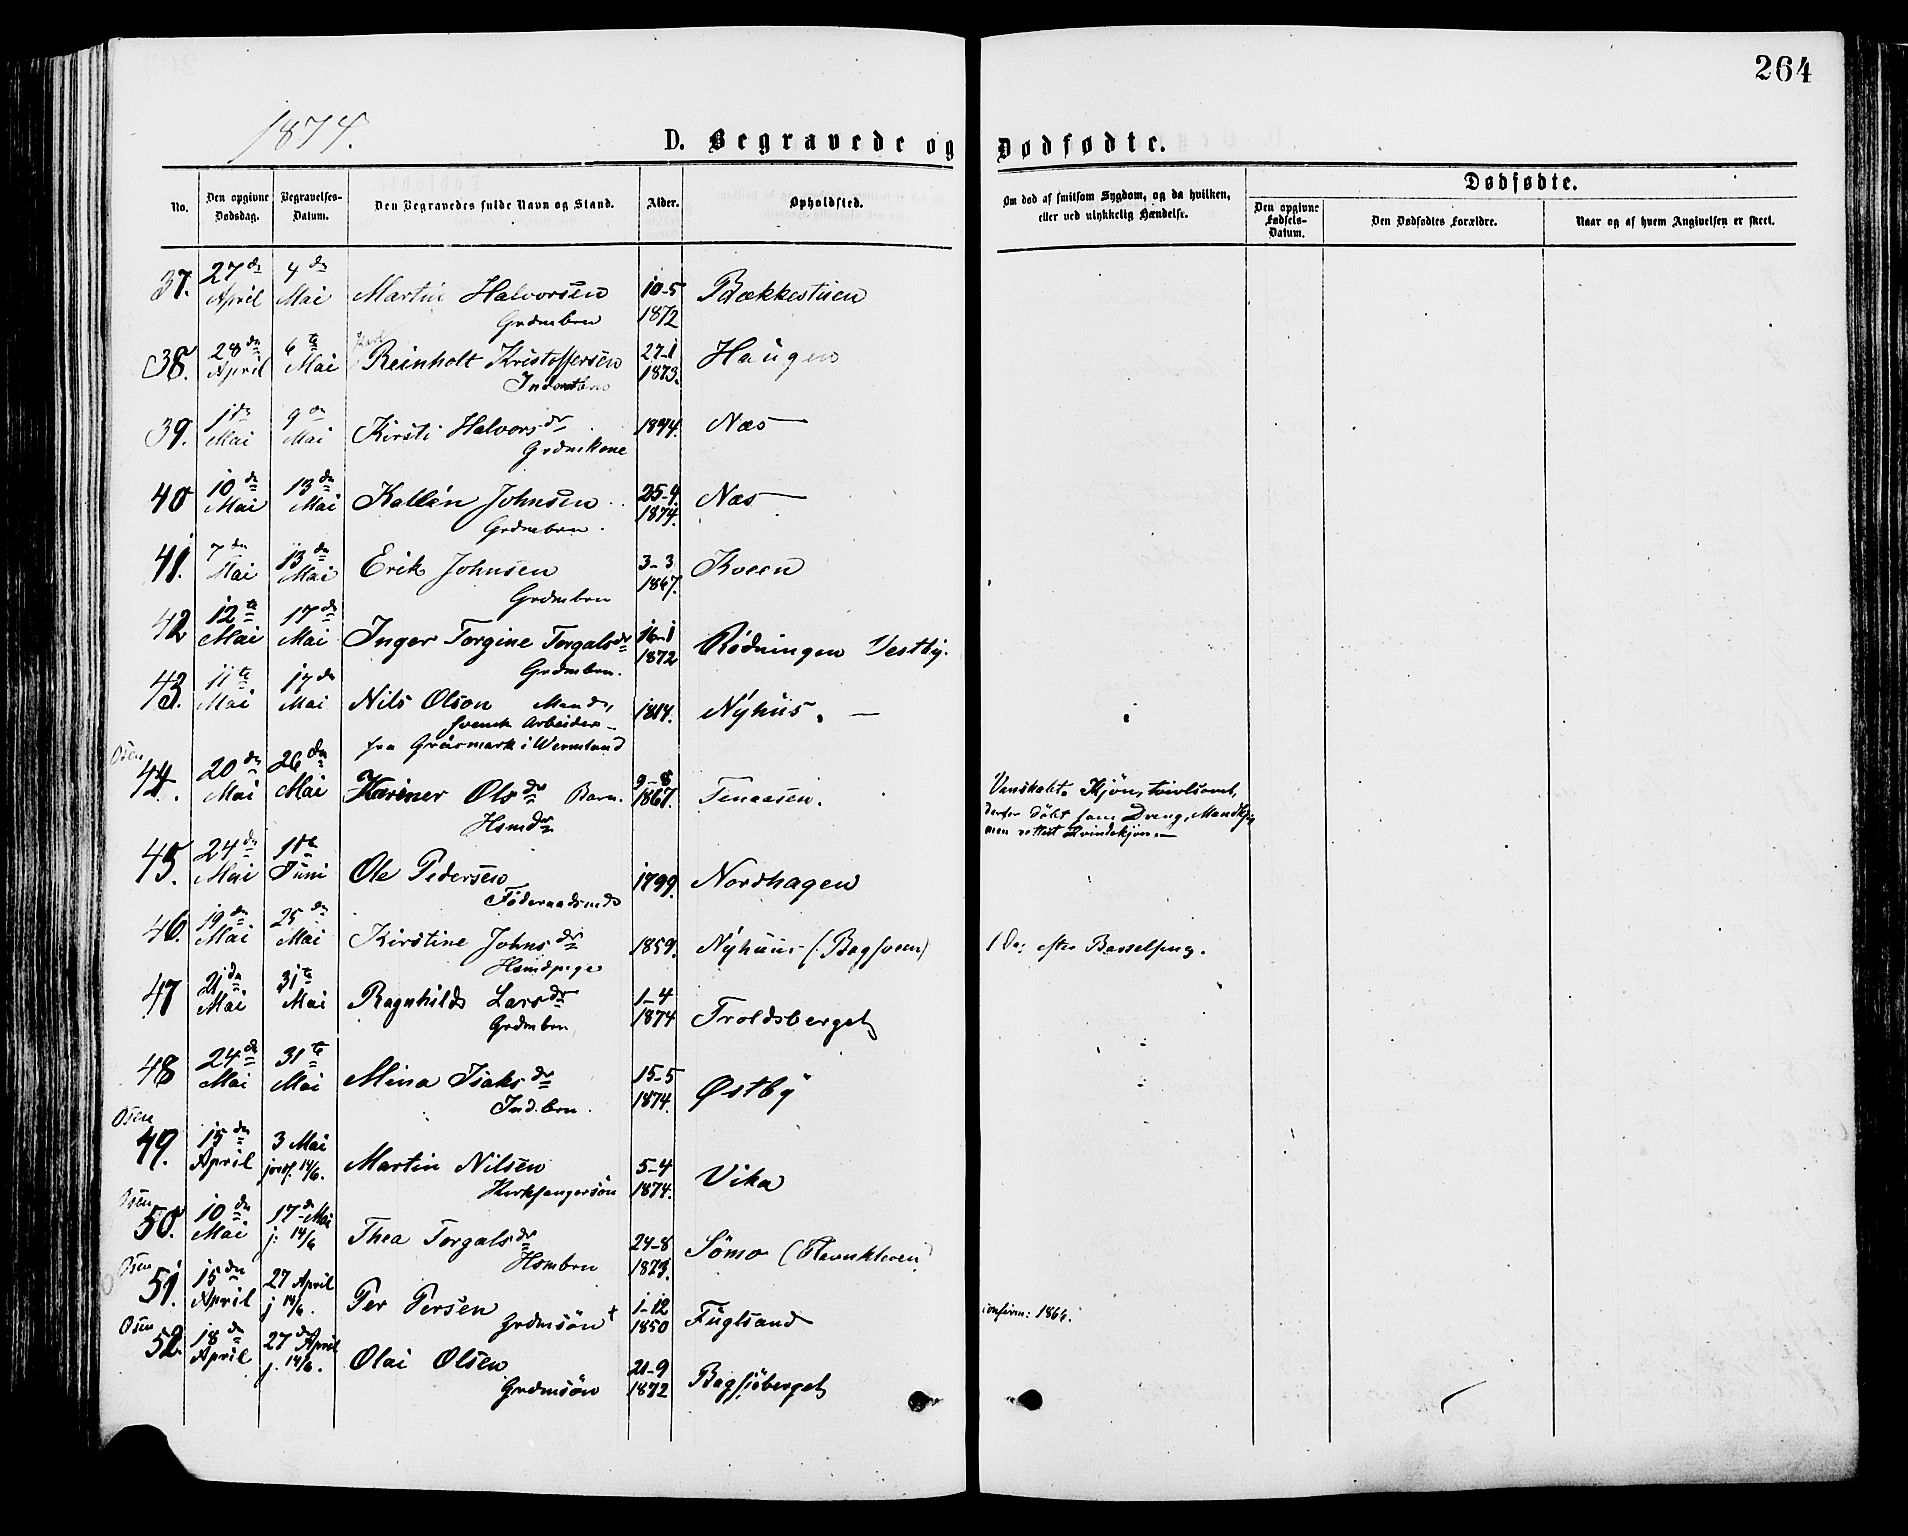 264
1874.
D. Begravede og Dødfødte.
No. Den opgivne Dødsdag. Begravelses-Datum. Den Begravedes fulde Navn og Stand. Alder. Opholdsted. Om død af smitsom Sygdom, og da hvilken, eller ved ulykkelig Hændelse. Dødfødte. Den opgivne Fødsels-Datum. Den Dødfødtes Forældre. Naar og af hvem Angivelsen er skeet.
37. 27de April 4de Mai Martin Halvorsen 10-5 1872 Bækkestuen
Grdmbrn
38. 28de April 6te Mai Reinholt Kristoffersen 27-1 1873. Haugen
39. 1de Mai 9de Mai Kirsti Halvorsdr Næs
Grdmkone
40 10de Mai 13de Mai Kallin Johnsen 25-4 1874. Næs
Grdmbrn.
41. 7de Mai 13de Mai Erik Johnsen 3-3 1867. Kveen
Grdmbrn
42 12te Mai 17de Mai Inger Torgine Torgalsdr 16-1 1872 Rødningen Vestby.
Grdmbrn.
43. 11te Mai 17de Mai Nils Olson Mand, 1814. Nÿhus. —
svensk Arbeider
fra Gräsmark i Wermland
Osen
44. 20de Mai 26de Mai Karine Olsdr Barn. 9-8 1867. Tenaasen. Vanskabt. Kjøn, tvivlsomt,
Hsmdr derfor døbt som Dreng, Mandkj,
men rettest Kvindekjøn.—
45. 24de Mai 1ste Juni Ole Pedersen 1799. Nordhagen
Föderaadsmd
46. 19de Mai 25de Mai Kirstine Johnsdr 1859. Nÿhuus (Bagsveen) 1 Da: efter Barselseng.
Hsmdpige
47 21de Mai 31te Mai Ragnhild Larsdr 1-4 1874 Troldsberget
Grdmbrn
48 24de Mai 31te Mai Mina Isaksdr 15-5 1874. Østbÿ
Ind.brn.
Osen
49. 15de April 3 Mai jordf. 14/6. Martin Nilsen 5-4 1874. Vika
Kirksangersön
Osen
50. 10de Mai 17de Mai j. 14/6 Thea Torgalsdr 24-8 1873. Sömo
Hsmbrn
Osen
51. 15de April 27 April j 14/6. Per Persen 1-12 1850 Fuglsand confirm: 1864.
Grdmsön +
Osen
52 18de April 27de April j. 14/6. Olai Olsen 21-9 1872 Bagsjöberget
Grdmsön